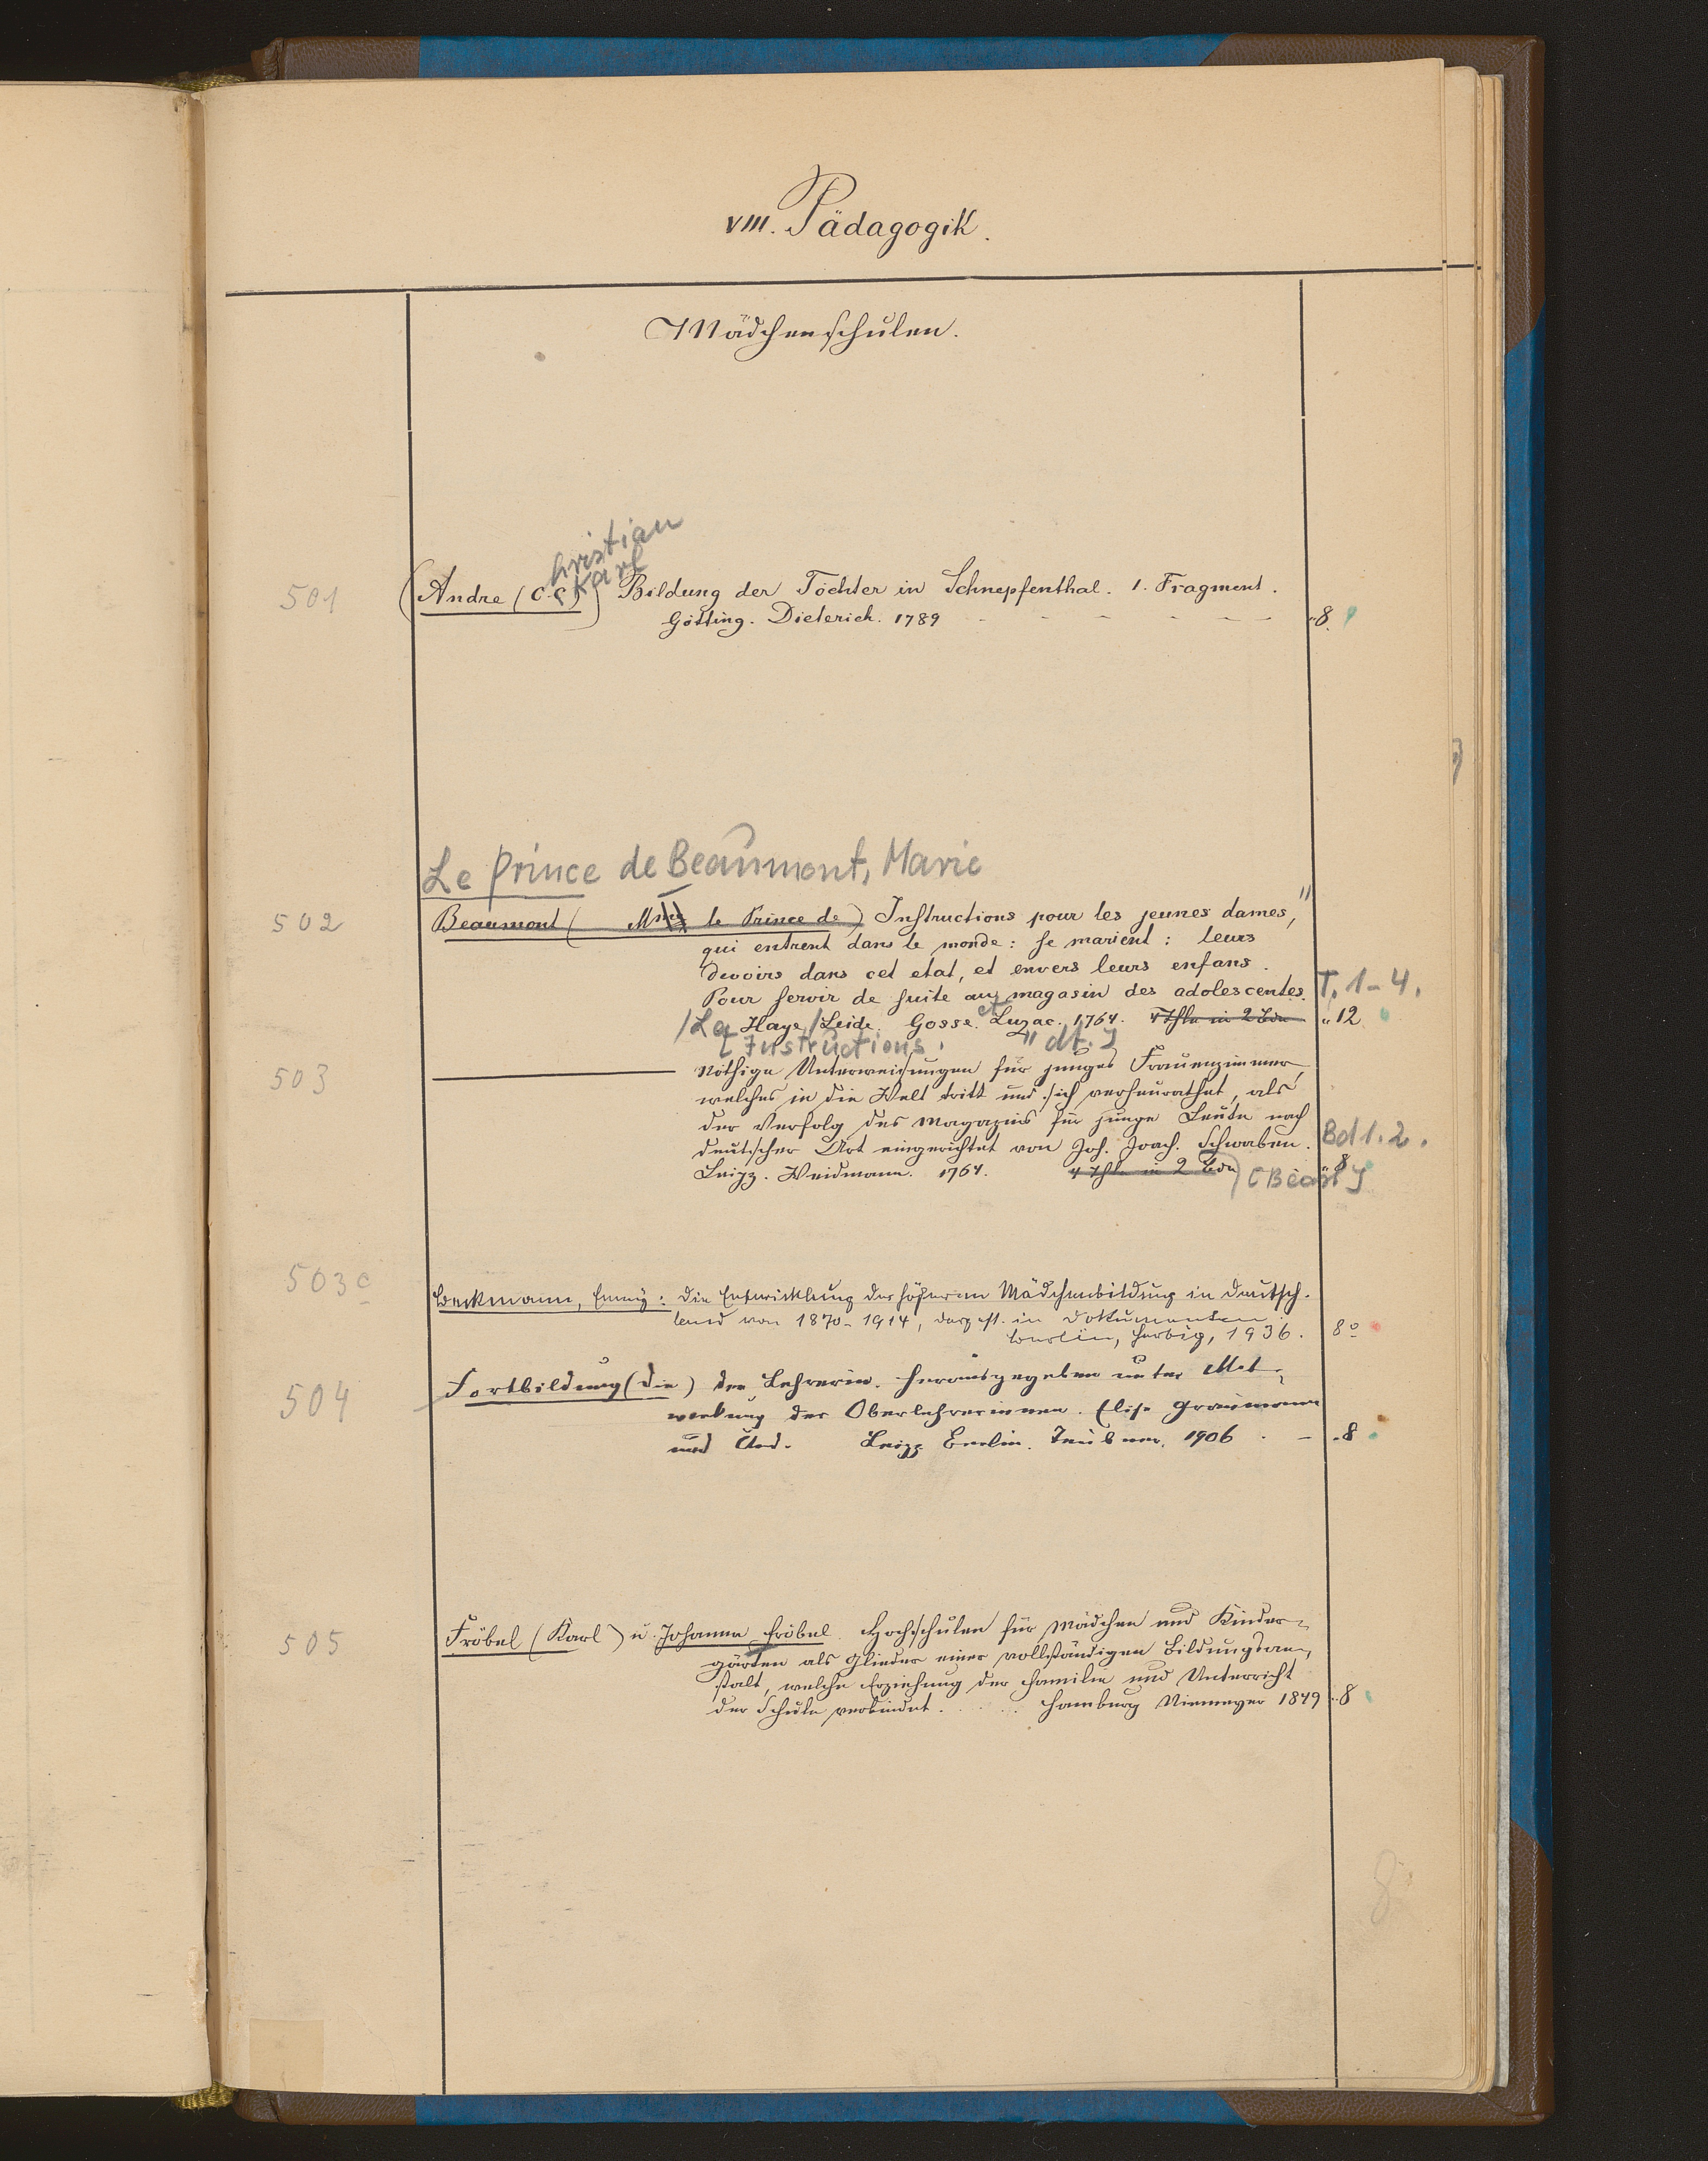 VIII. Pädagogik.
Mädchenschulen.
Christian
Karl
501 (Andre (C. C.)) Bildung der Töchter in Schnepfenthal. 1. Fragment.
Götting. Dieterich. 1789 - - - - - "8.
Le Prince de Beaumont, Marie
502 Beaumont ( Mme le Prince de) Instructions pour les jeunes dames,"
qui entrent dans le monde: se marient: leurs
devoirs dans cet etat, et envers leurs enfans.
Pour servir de suite au magasin des adolescentes. T. 1-4.
/La Haye/Leide. Gosse. et Luzac. 1764. 4 Thle in 2 Bdn "12
[Instructions, " dt.]
503 ——— Nöthige Unterweisungen für junges Frauenzimmer,
welches in die Welt tritt und sich verheurathet, als
der Verfolg des Magazins für junge Leute nach
deutscher Art eingerichtet von Joh. Joach. Schwaben. Bd 1.2.
Leipz. Weidmann. 1764. 4 Thle in 2 Bdn "8
503c Beckmann, Emmy: Die Entwicklung der höheren Mädchenbildung in Deutsch-
land von 1870-1914, dargest. in Dokumenten.
Berlin, Herbig, 1936. 8º
504 Fortbildung (Die) der Lehrerin. Herausgegeben unter Mit-
wirkung der Oberlehrerinnen. Elise Graumann
und And. Leipz Berlin. Teubner. 1906 . - "8
505 Fröbel (Karl) u. Johanna Fröbel. Hochschulen für Mädchen und Kinder-
gärten als Glieder einer vollständigen Bildungsan-
stalt, welche Erziehung der Familie und Unterricht
der Schule verbindet. Hamburg Niemeyer 1849 "8
8